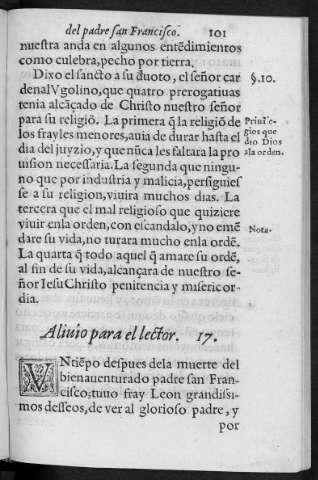 del padre san Francisco. 101
nuestra anda en algunos entẽdimientos
como culebra, pecho por tierra.
Dixo el sancto a su ðuoto, el señor car
denal Vgolino, que quatro prerogatiuas
tenia alcãçado de Christo nuestro señor
para su religiõ. La primera q̃ la religiõ de
los frayles menores, auia de durar hasta el
dia del juyzio, y que nũca les faltara la pro
uission necessaria. La segunda que ningu-
no que por industria y malicia, persiguies
se a su religion, viuira muchos dias. La
tercera que el mal religioso que quiziere
viuir enla orden, con escandalo, y no eme
dare su vida, no turara mucho enla ordẽ.
La quarta q̃ todo aquel q̃ amare su ordẽ,
al fin de su vida, alcançara de nuestro se-
ñor Iesu Christo penitencia y misericor-
dia.
§.10.
Priuile-
gios que
dio Dios
ala orden.
Nota.
Aliuio para el lector. 17.
VNtiẽpo despues dela muerte del
bienauenturado padre san Fran-
cisco; tuuo fray Leon grandissi-
mos desseos, de ver al glorioso padre, y
por